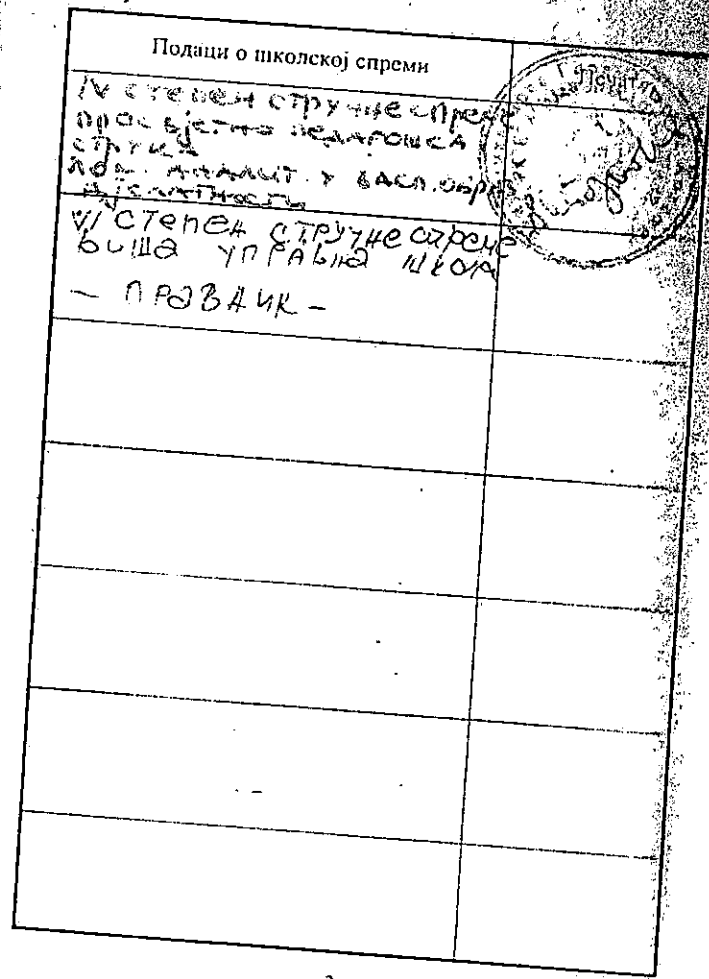 Подаци о школској спреми
IV степен стручне спреме
просвјетно педагошка
струка
у васп. обр.
дјелатности
VI степен стручне спреме
виша управна школа
– правник –